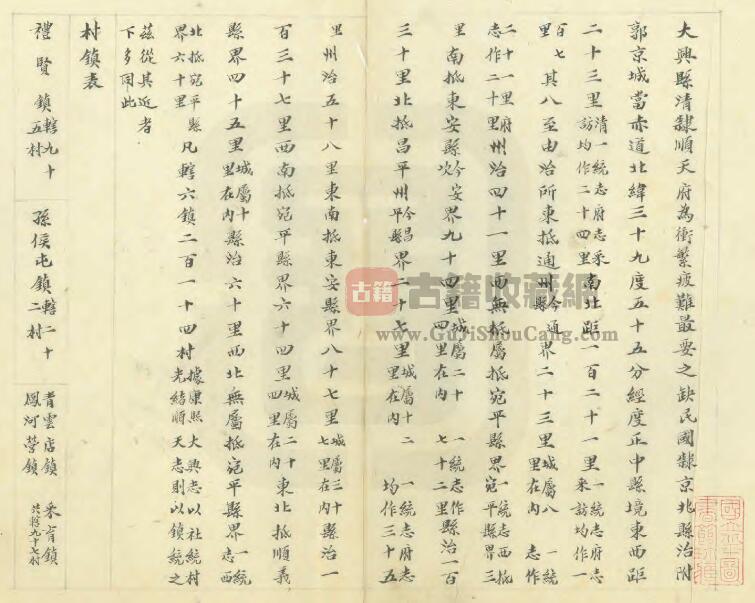 大興縣清隸順天府為衝繁疲難最要之缺民國隸京兆縣治附
郭京城當赤道北緯三十九度五十五分經度正中縣境東西距
二十三里清一統志府志采訪均作二十四里南北距一百二十一里一統志府志采訪均作一
百七里其八至由治所東抵通州今通縣界二十三里城屬八里在內一統志作
二十一里府志作二十里州治四十一里西無抵屬抵宛平縣界一統志西抵宛平縣界三
里南抵東安縣今安次界九十四里城屬二十四里在內一統志作七十二里縣治一百
三十里北抵昌平州今昌平縣界二十七里城屬十二里在內一統志府志均作三十五
里州治五十八里東南抵東安縣界八十七里城屬三十七里在內縣治一
百三十七里西南抵宛平縣界六十四里城屬二十四里在內東北抵順義
縣界四十五里城屬十里在內縣治六十里西北無屬抵宛平縣界一統志西
北抵宛平縣界六十里凡轄六鎮二百一十四村據康熙大興志以社統村光緒順天志則以鎮統之
茲從其近者下多同此
村鎮表
禮賢鎮轄九十五村
孫侯屯鎮轄二十二村
青雲店鎮
鳳河營鎮
采育鎮
共轄九十七村
古籍
古籍收藏網
www.GuJiShouCang.com